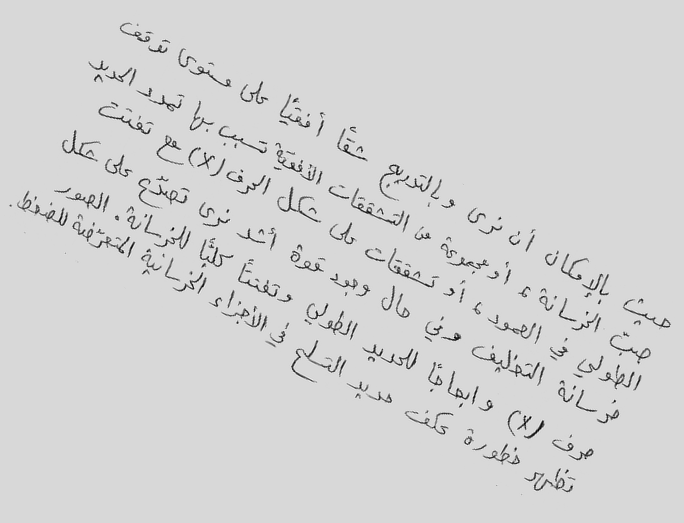 حيث بالإمكان أن نرى وبالتدريج شقًا أفقيًا على مستوى توقف
صبّ الخرسانة، أو مجموعة من التشققات الأفقية تسبب بها تمدد الحديد
الطولي في العمود، أو تشققات على شكل الحرف (X) مع تفتت
خرسانة التغليف وفي حال وجود قوة أشد نرى تصدّع على شكل
حرف (X) وابعاجًا للحديد الطولي وتفتتًا كليًا للخرسانة. الصور
تظهر خطورة عكف حديد التسلح في الأجزاء الخرسانية المتعرّضة للضغط.